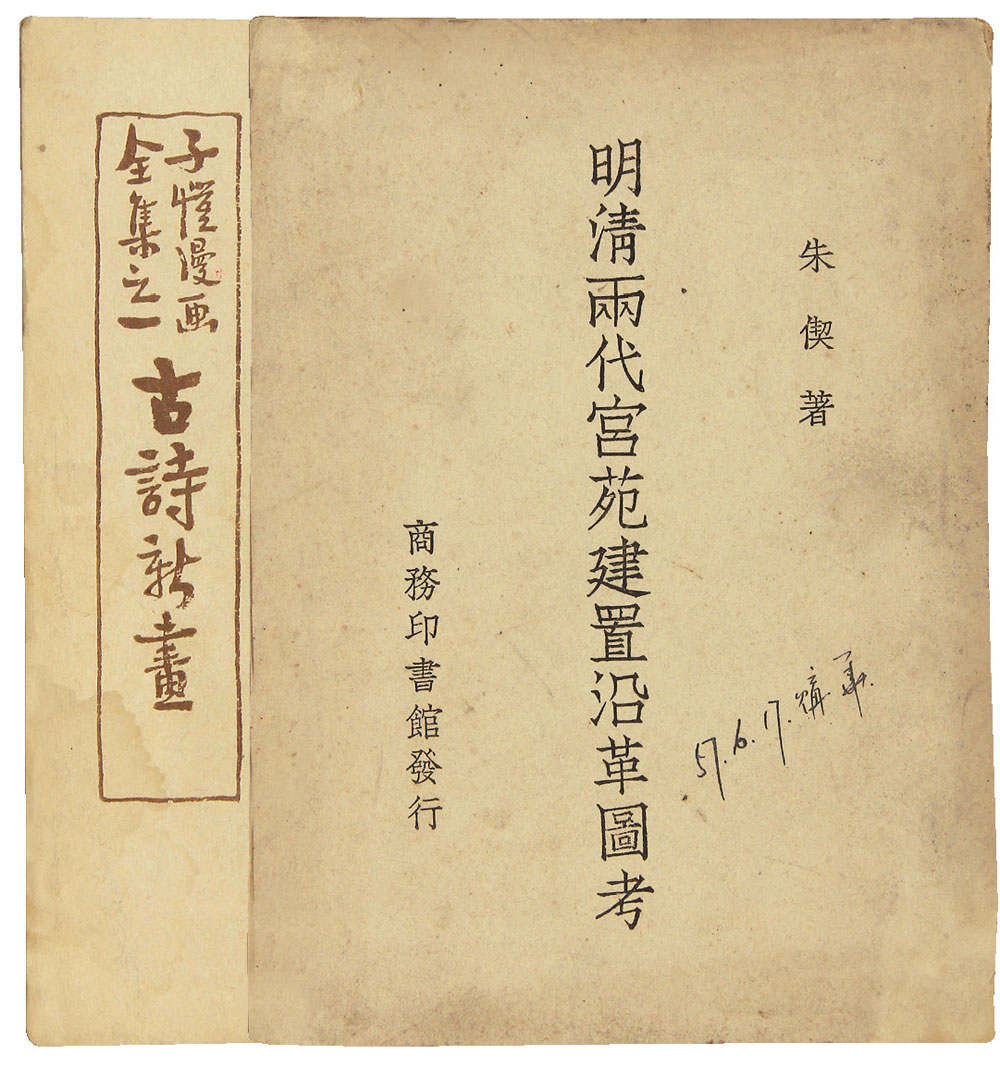 朱偰著
明淸兩代宮苑建置沿革圖考
商務印書館發行
57.6.17.購
子愷漫画
全集之一
古詩新畫